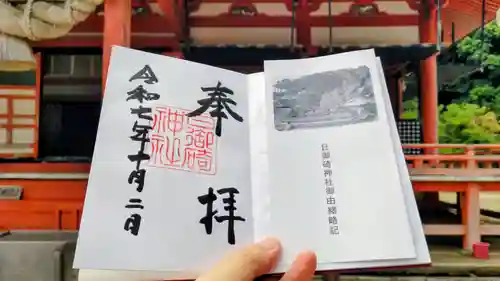 奉拝
日御碕神社
令和七年十月二日
日御碕神社御由緒略記